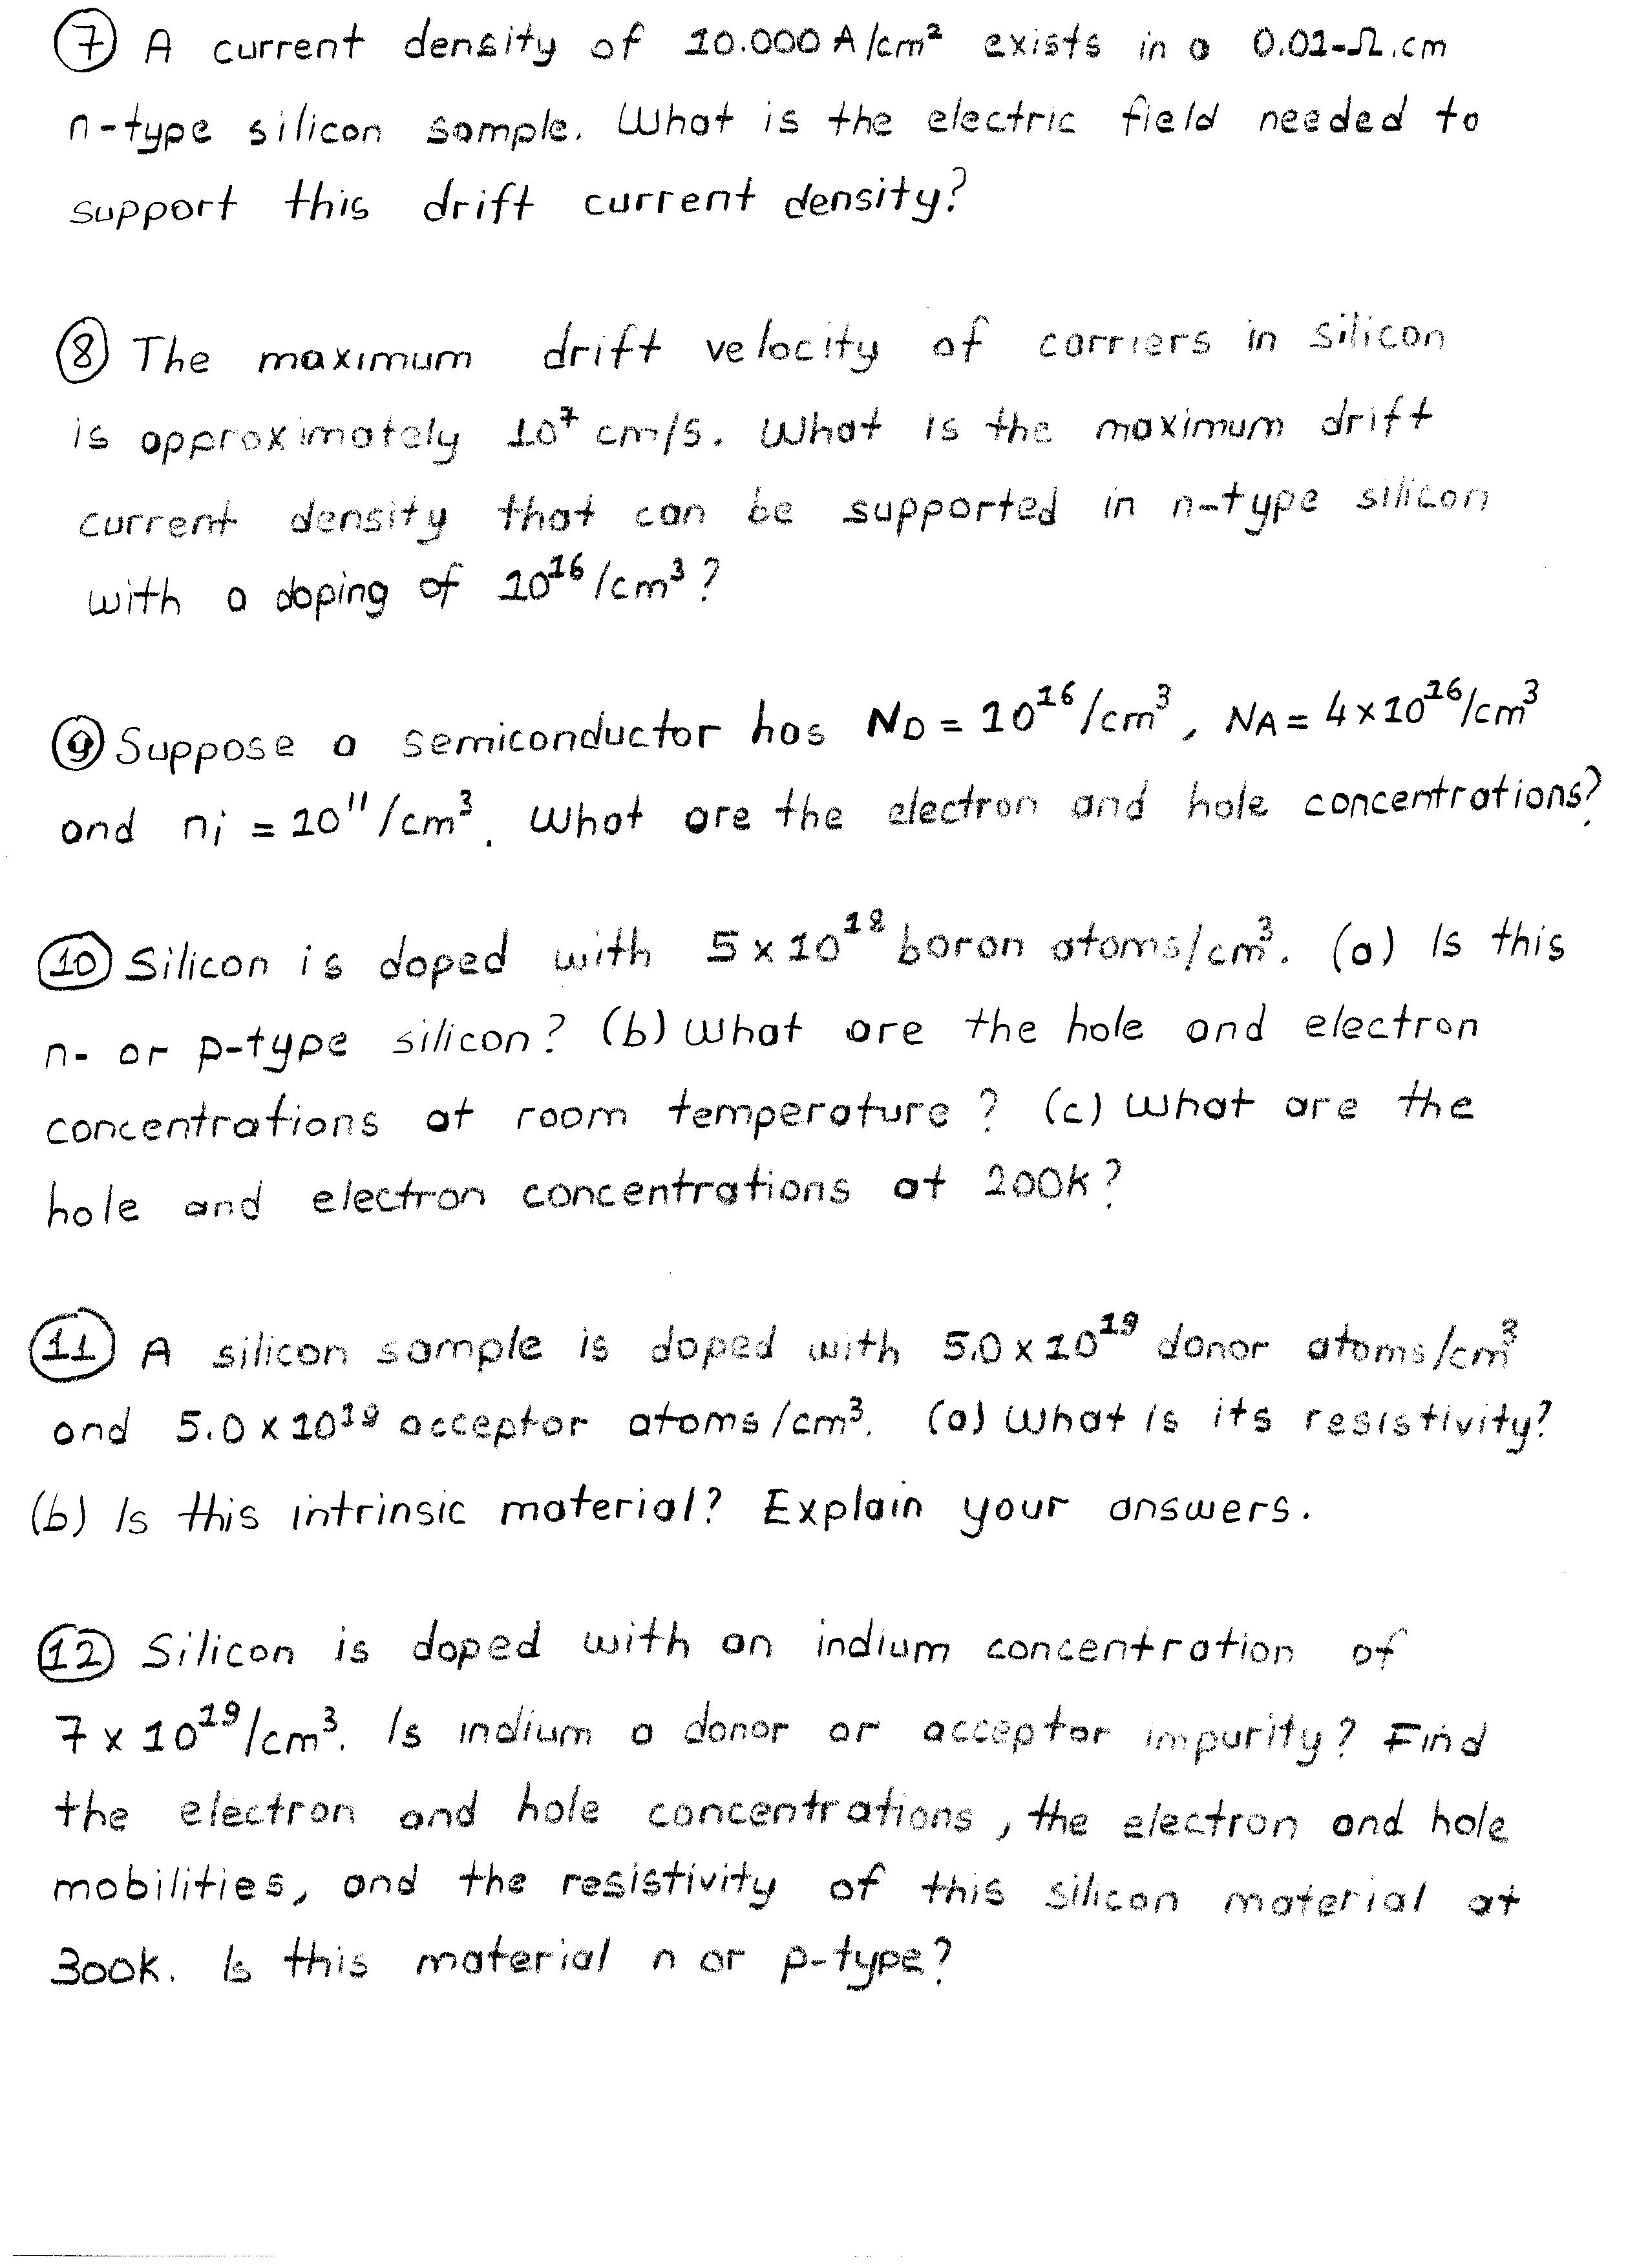 ⑦ A current density of 10.000 A/cm² exists in a 0.01-Ω.cm
n-type silicon sample. What is the electric field needed to
support this drift current density?
⑧ The maximum drift velocity of carriers in silicon
is approximately 10⁷ cm/s. What is the maximum drift
current density that can be supported in n-type silicon
with a doping of 10¹⁶/cm³?
⑨ Suppose a semiconductor has ND = 10¹⁶/cm³, NA = 4x10¹⁶/cm³
and ni = 10¹¹/cm³. What are the electron and hole concentrations?
⑩ Silicon is doped with 5 x 10¹⁸ boron atoms/cm³. (a) Is this
n- or p-type silicon? (b) What are the hole and electron
concentrations at room temperature? (c) What are the
hole and electron concentrations at 200k?
⑪ A silicon sample is doped with 5.0 x 10¹⁹ donor atoms/cm³
and 5.0 x 10¹⁹ acceptor atoms/cm³. (a) What is its resistivity?
(b) Is this intrinsic material? Explain your answers.
⑫ Silicon is doped with an indium concentration of
7 x 10¹⁹/cm³. Is indium a donor or acceptor impurity? Find
the electron and hole concentrations, the electron and hole
mobilities, and the resistivity of this silicon material at
300k. Is this material n or p-type?